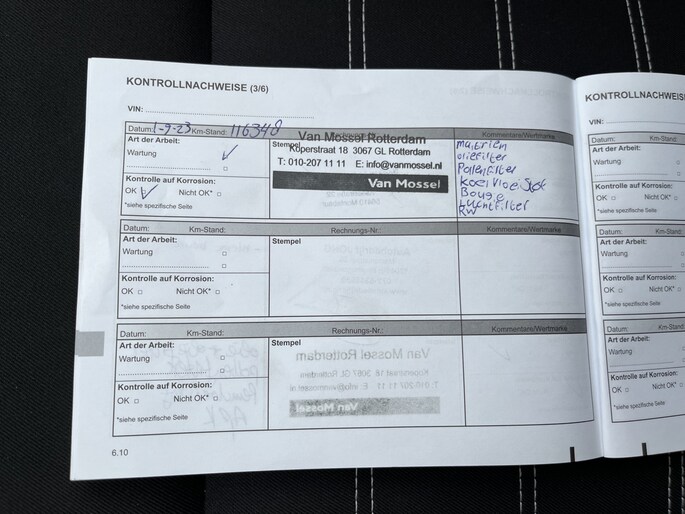 KONTROLLNACHWEISE (3/6)
VIN:
Datum: 1-9-23 Km-Stand: 116348
Kommentare/Wertmarke
Art der Arbeit:
Wartung
Kontrolle auf Korrosion:
OK Nicht OK*
*siehe spezifische Seite
Stempel
Van Mossel Rotterdam
Koperstraat 18 3067 GL Rotterdam
T: 010-207 11 11 E: info@vanmossel.nl
Van Mossel
oliefilter
Pollenfilter
Koelvloeistof
Bougie
Luchtfilter
RW
Datum: Km-Stand: Rechnungs-Nr.: Kommentare/Wertmarke
Art der Arbeit:
Wartung
Kontrolle auf Korrosion:
OK Nicht OK*
*siehe spezifische Seite
Stempel
Datum: Km-Stand: Rechnungs-Nr.: Kommentare/Wertmarke
Art der Arbeit:
Wartung
Kontrolle auf Korrosion:
OK Nicht OK*
*siehe spezifische Seite
Stempel
Van Mossel Rotterdam
Koperstraat 18 3067 GL Rotterdam
T: 010-207 11 11 E: info@vanmossel.nl
Van Mossel
6.10
KONTROLLNACHWEIS
VIN:
Datum: Km-Stand
Art der Arbeit:
Wartung
Kontrolle auf Korrosion:
OK Nicht OK*
*siehe spezifische Seite
Datum: Km-Stand
Art der Arbeit:
Wartung
Kontrolle auf Korrosion:
OK Nicht OK*
*siehe spezifische Seite
Datum: Km-Stan
Art der Arbeit:
Wartung
Kontrolle auf Korrosion:
OK Nicht OK*
*siehe spezifische Seite